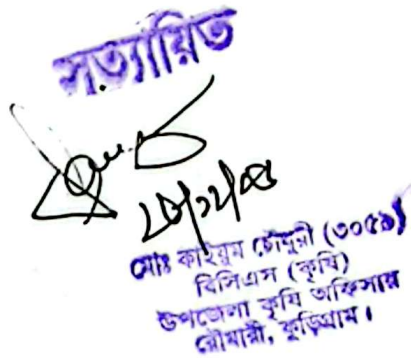 সত্যায়িত
মোঃ কাইয়ুম চৌধুরী (৩০৫৯)
বিসিএস (কৃষি)
উপজেলা কৃষি অফিসার
রৌমারী, কুড়িগ্রাম।